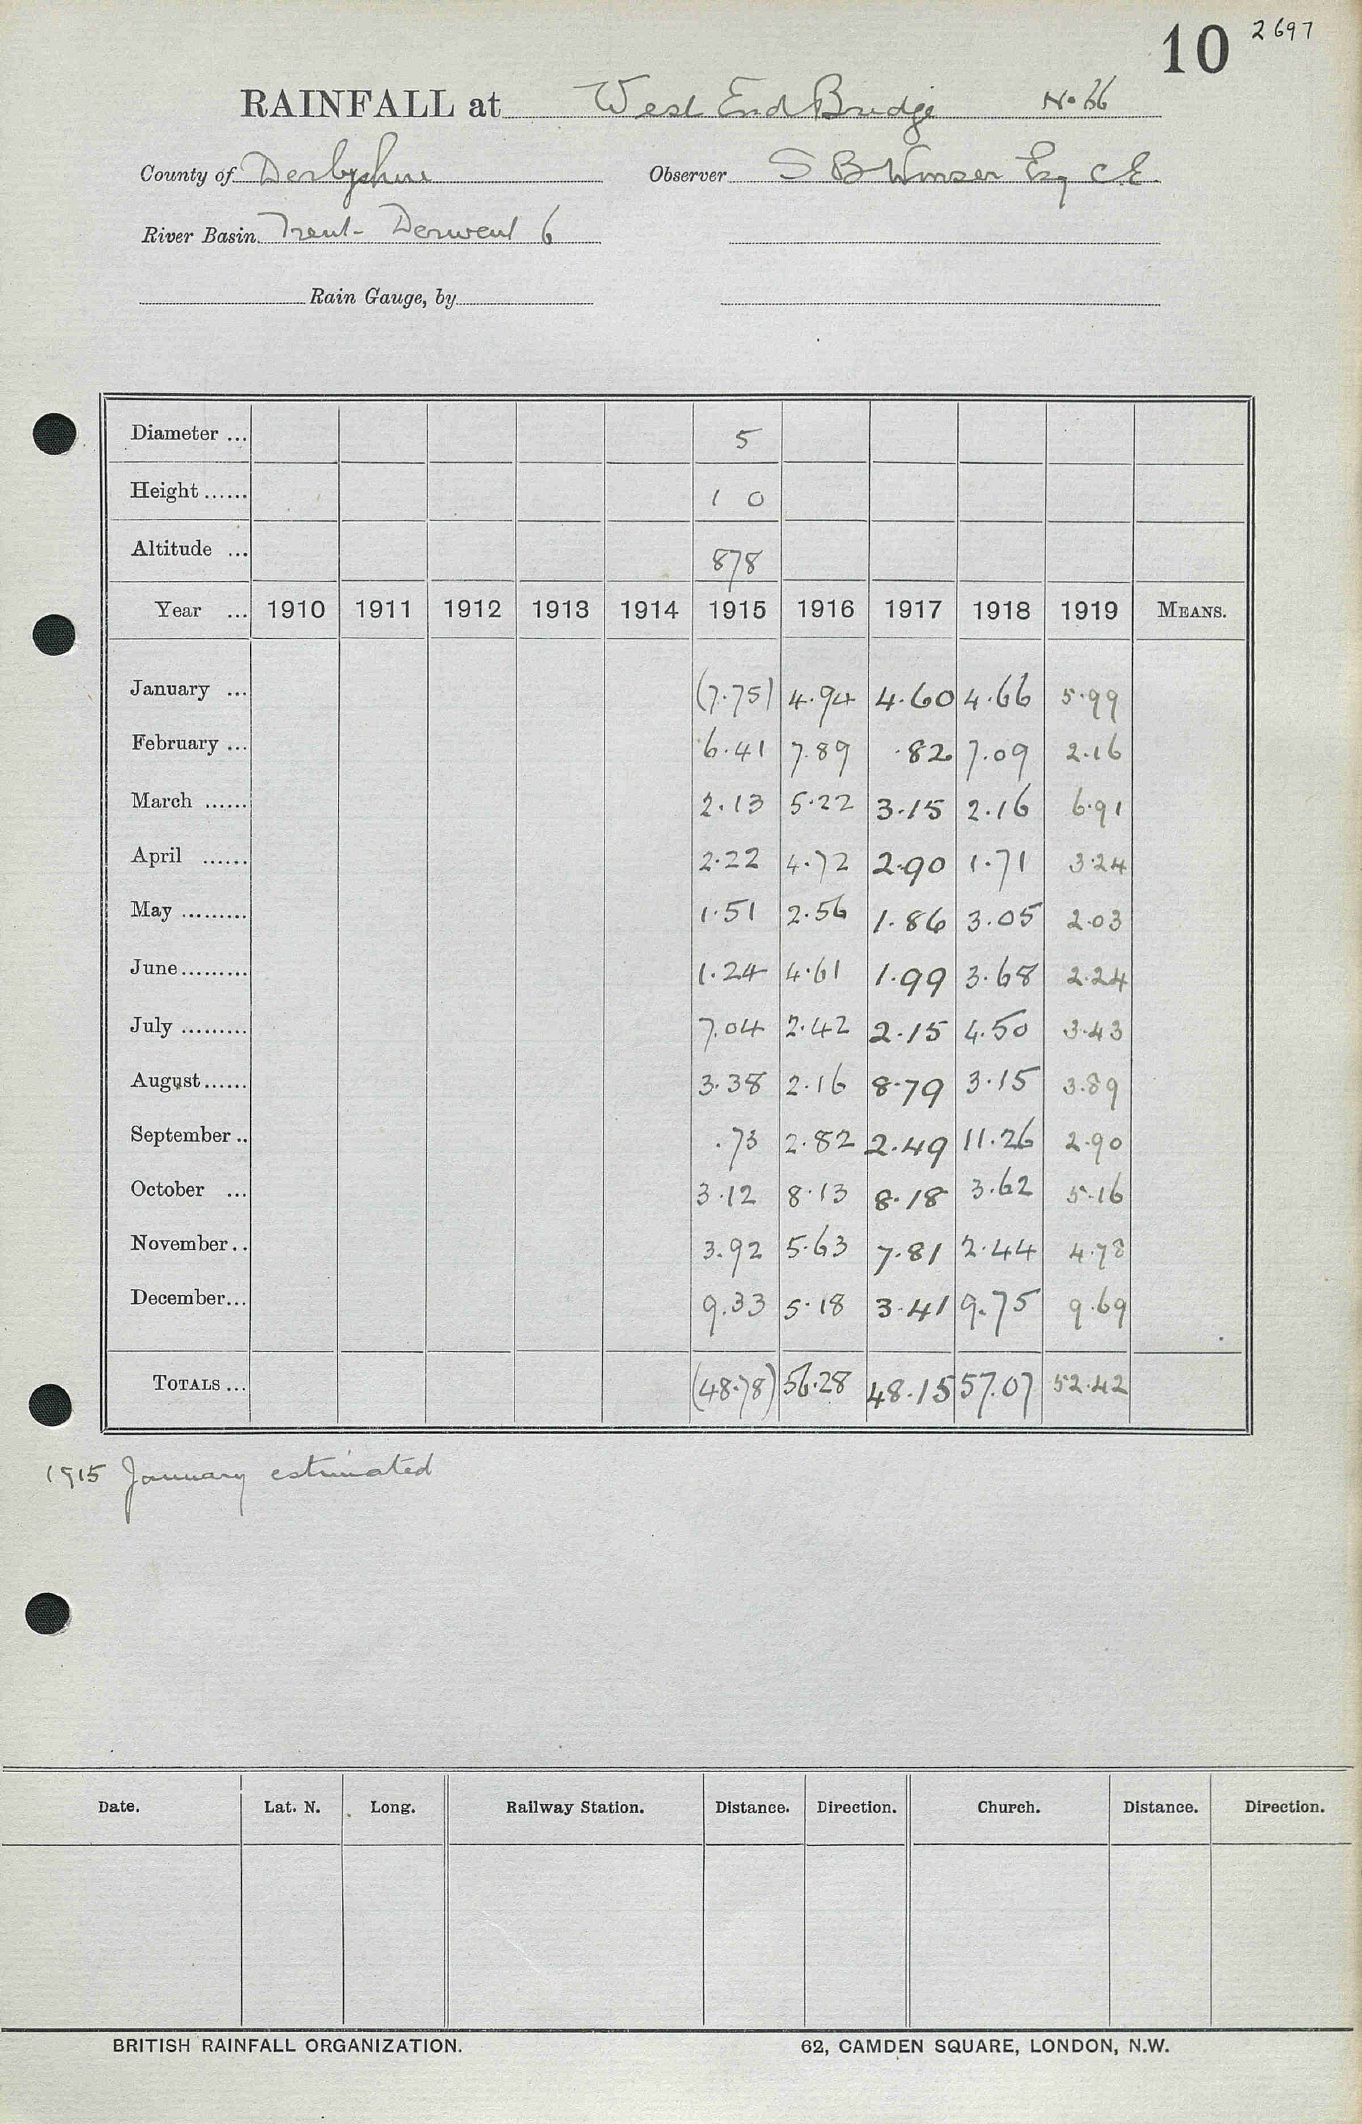 10 2697
RAINFALL at West End Bridge No 66
County of Derbyshire Observer S B Winser Esq C.E.
River Basin Trent - Derwent 6
Rain Gauge, by
Diameter ... 5
Height ...... 1 0
Altitude ... 878
Year ... 1910 1911 1912 1913 1914 1915 1916 1917 1918 1919 MEANS.
January ... (7.75) 4.94 4.60 4.66 5.99
February ... 6.41 7.89 .82 7.09 2.16
March ...... 2.13 5.22 3.15 2.16 6.91
April ...... 2.22 4.72 2.90 1.71 3.24
May ......... 1.51 2.56 1.86 3.05 2.03
June ......... 1.24 4.61 1.99 3.68 2.24
July ......... 7.04 2.42 2.15 4.50 3.43
August ...... 3.38 2.16 8.79 3.15 3.89
September .. .73 2.82 2.49 11.26 2.90
October ... 3.12 8.13 8.18 3.62 5.16
November .. 3.92 5.63 7.81 2.44 4.78
December ... 9.33 5.18 3.41 9.75 9.69
TOTALS ... (48.78) 56.28 48.15 57.07 52.42
1915 January estimated
Date. Lat. N. Long. Railway Station. Distance. Direction. Church. Distance. Direction.
BRITISH RAINFALL ORGANIZATION. 62, CAMDEN SQUARE, LONDON, N.W.